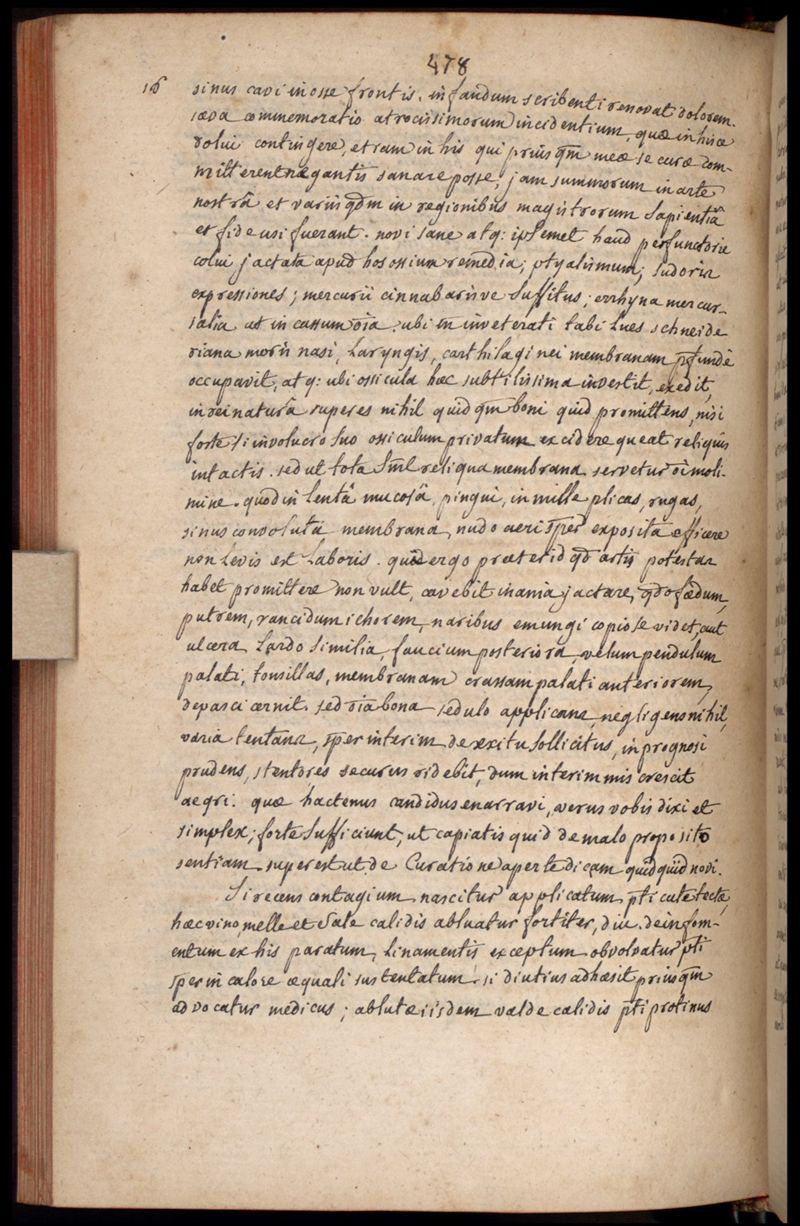 478
16 sinus cavi in osse frontis. infandum scribenti renovat dolorem
sæva commemoratio atrocissimorum incidentium, quæ in hisce
dolui contingere, etiam in his qui priusqm meæ se curæ com-
mitterent negantis sanare posse, jam summorum in arte
nostrâ et variis qdm in regionibus magistrorum sapientiâ
et fide usi fuerant. novi sane atq: ipsemet haud perfunctorie
colui jactata apud hos ossium remedia; ptyalismum; sudoris
expressiones; mercurii cinnabarisve suffitus; errhyna mercur-
ialia. at in cassum oia: ubi in inveterati tabi lues schneide
riana moris nasi, Laryngis, carthilaginei membranam pfunde
occupavit, atq: ubi ossicula hæc subtilissima investit, exedit,
in rei naturâ superes nihil quidqm boni quid promittens, nisi
forte si involucro suo ossiculum privatum excidere queat reliquis
intactis. sed ut tota sml reliqua membrana servetur oi moli-
mine. quod in lentâ mucosâ, pingui, in mille plicas, rugas,
sinus convolutâ membrana, nudo aeri sper exposita efficere
non levis est laboris. quid ergo præter id qd artis potestas
habet promittere non vult, cavebit inania jactare, qdo fœdum,
putrem, rancidum ichorem, naribus emungi copiose videt, aut
ulcera lardo similia, faucium posteriora, velum pendulum
palati, tonsillas, membranam crassam palati anteriorem,
depasci cernit. sed oia bona sedulo applicans, negligens nihil,
varia tentans, sper interim de exitu sollicitus, in prognosi
prudens, stentores securus ridebit, dum interim mis crescit
aegri. quæ hactenus candidus enarravi, verus vobis dixi et
simplex; forte sufficiunt, ut capiatis quid de malo proposito
sentiam. superest ut de Curatione aperte dicam quidquid novi.
Si recens contagium nascitur applicatum pti cute tectæ,
hæc vino melle et sale calidis abluatur fortiter, diu. dein fom-
entum ex his paratum, linamentis exceptum obvolvatur pti
sper in calore æquali sustentatum. si diutius adhæsit priusqm
advocatur medicus; ablutæ iisdem valde calidis pti protinus